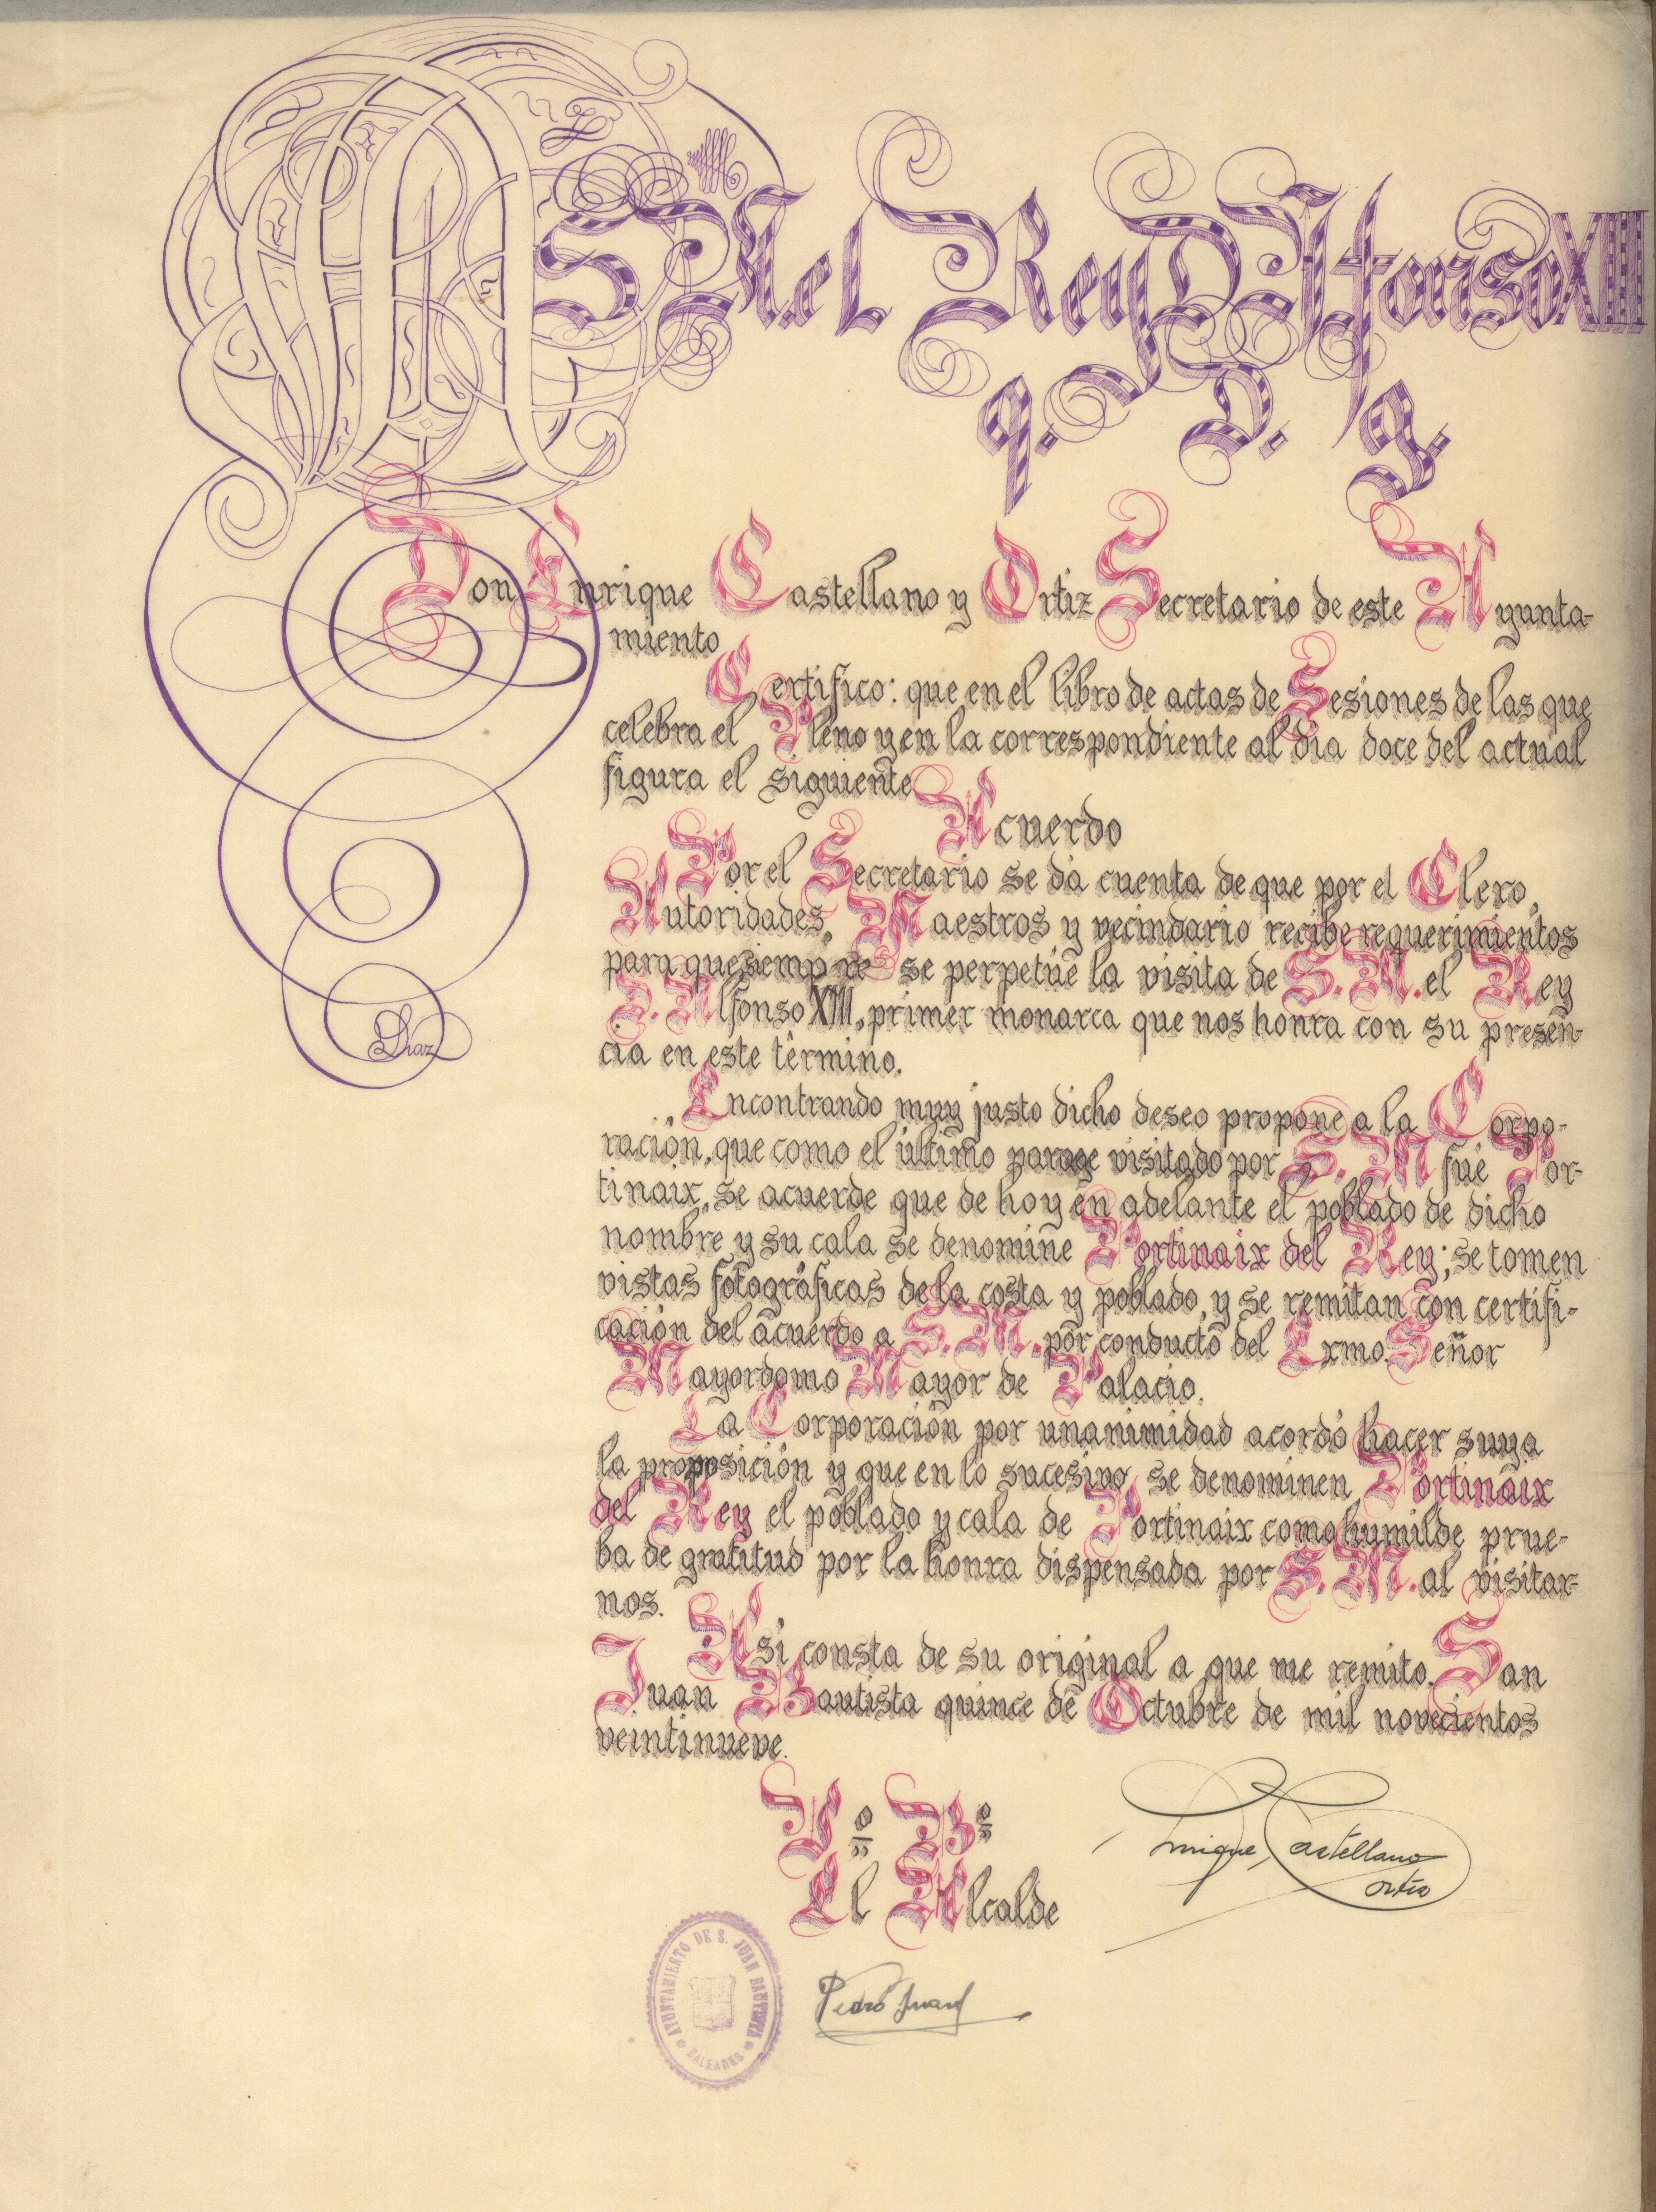 A S. M. el Rey D. Alfonso XIII
q. D. g.
Don Enrique Castellano y Ortiz Secretario de este Ayunta-
miento
Certifico: que en el libro de actas de Sesiones de las que
celebra el Pleno y en la correspondiente al dia doce del actual
figura el siguiente
Acuerdo
Por el Secretario se dá cuenta de que por el Clero,
Autoridades, Maestros y vecindario recibe requerimientos
para que siempre se perpetúe la visita de S. M. el Rey
D. Alfonso XIII, primer monarca que nos honra con su presen-
cia en este término.
Encontrando muy justo dicho deseo propone a la Corpo-
ración, que como el último parage visitado por S. M fué Por-
tinaix, se acuerde que de hoy en adelante el poblado de dicho
nombre y su cala se denomine Portinaix del Rey; se tomen
vistas fotográficas de la costa y poblado, y se remitan con certifi-
cación del acuerdo a S. M. por conducto del Exmo. Señor
Mayordomo Mayor de Palacio.
La Corporación por unanimidad acordó hacer suya
la proposición y que en lo sucesivo, se denominen Portinaix
del Rey el poblado y cala de Portinaix como humilde prue-
ba de gratitud por la honra dispensada por S. M. al visitar-
nos.
Asi consta de su original a que me remito. San
Juan Bautista quince de Octubre de mil novecientos
veintinueve.
Vº Bº
El Alcalde
Enrique Castellano
Ortiz
Pedro Juan
AYUNTAMIENTO DE S. JUAN BAUTISTA
BALEARES
Diaz